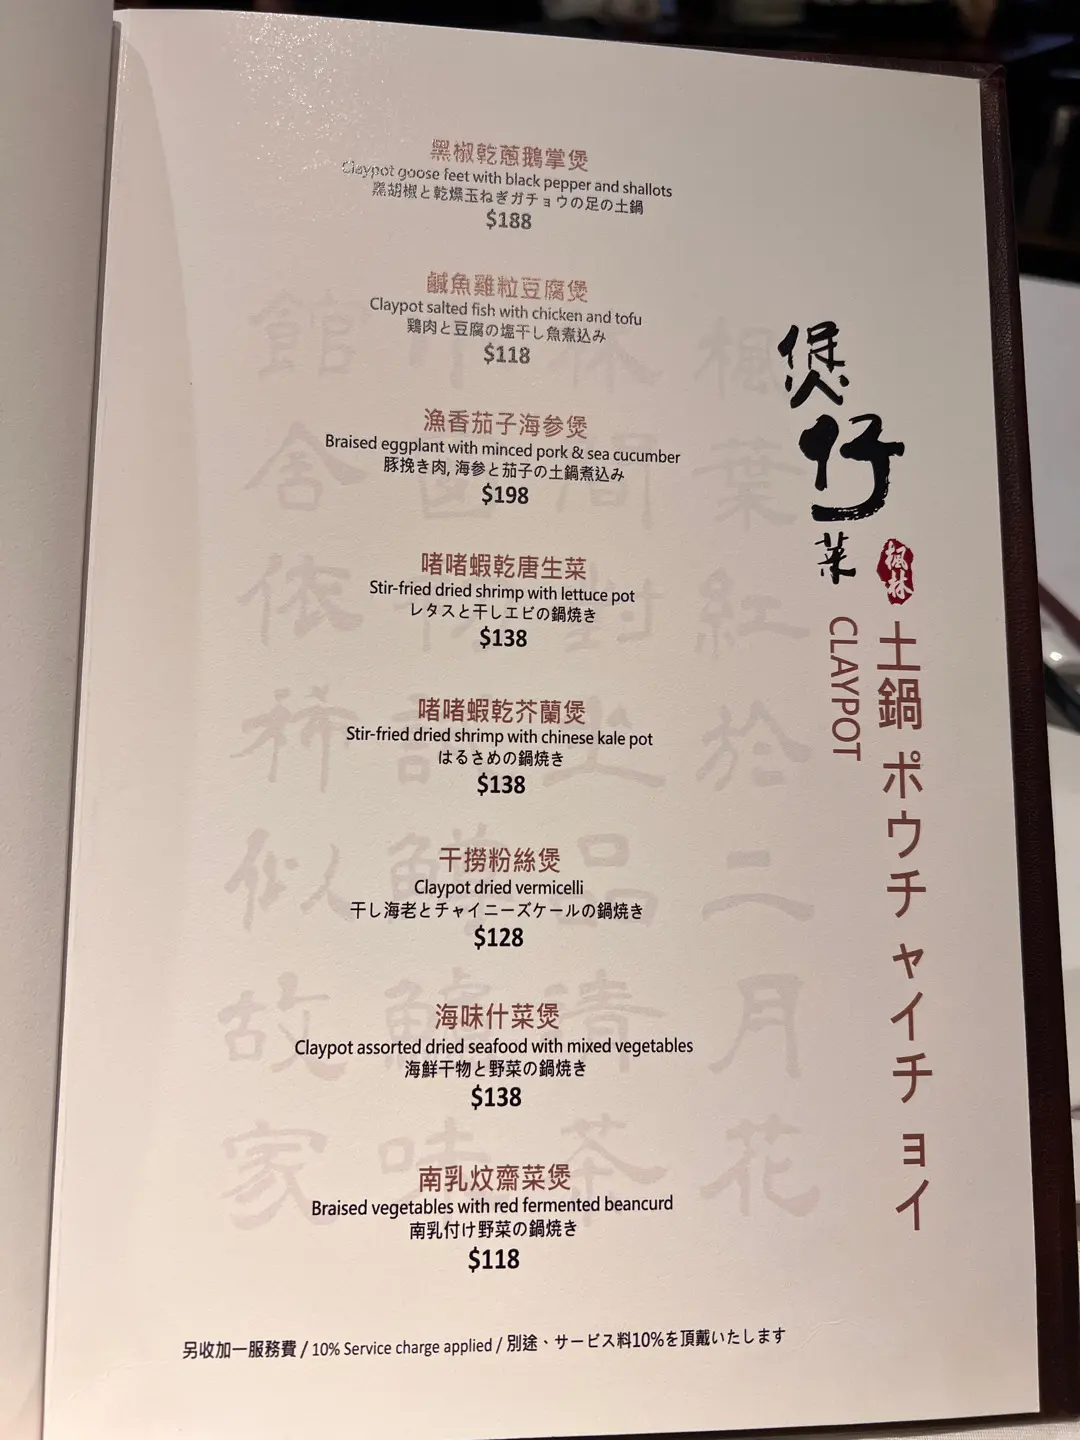 黑椒乾蔥鵝掌煲
Claypot goose feet with black pepper and shallots
黒胡椒と乾燥玉ねぎガチョウの足の土鍋
$188
鹹魚雞粒豆腐煲
Claypot salted fish with chicken and tofu
鶏肉と豆腐の塩干し魚煮込み
$118
漁香茄子海参煲
Braised eggplant with minced pork & sea cucumber
豚挽き肉, 海参と茄子の土鍋煮込み
$198
啫啫蝦乾唐生菜
Stir-fried dried shrimp with lettuce pot
レタスと干しエビの鍋焼き
$138
啫啫蝦乾芥蘭煲
Stir-fried dried shrimp with chinese kale pot
はるさめの鍋焼き
$138
干撈粉絲煲
Claypot dried vermicelli
干し海老とチャイニーズケールの鍋焼き
$128
海味什菜煲
Claypot assorted dried seafood with mixed vegetables
海鮮干物と野菜の鍋焼き
$138
南乳炆齋菜煲
Braised vegetables with red fermented beancurd
南乳付け野菜の鍋焼き
$118
另收加一服務費 / 10% Service charge applied / 別途、サービス料10%を頂戴いたします
煲仔菜
楓林
CLAYPOT
土鍋 ポウチャイチョイ
楓葉紅於二月花
館舍依稀似故家